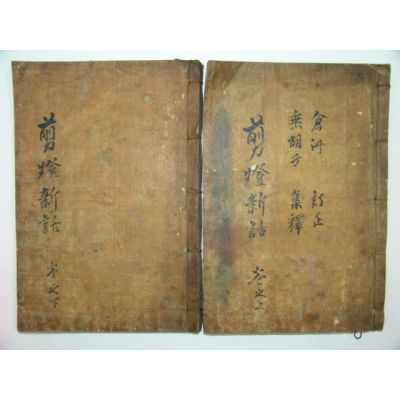 倉洲 訂正
垂胡子 集釋
剪燈新話
卷之上
剪燈新話
卷之下